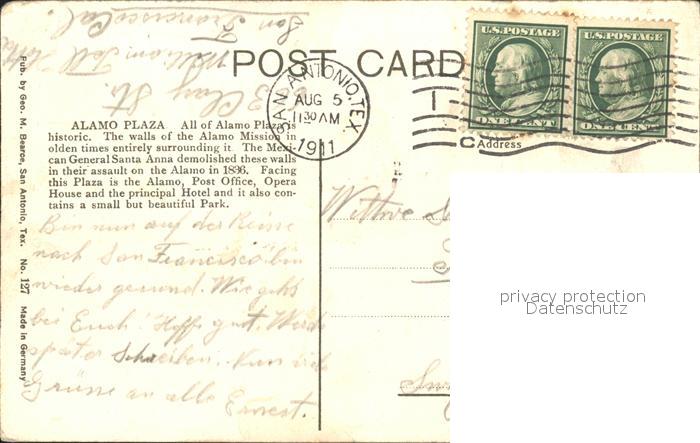 San Francisco Cal.
William Tell
Clay St.
POST CARD
SAN ANTONIO, TEX.
AUG 5
11 30 AM
1911
U.S. POSTAGE
ONE CENT
U.S. POSTAGE
ONE CENT
Address
ALAMO PLAZA All of Alamo Plaza is
historic. The walls of the Alamo Mission in
olden times entirely surrounding it. The Mexi-
can General Santa Anna demolished these walls
in their assault on the Alamo in 1836. Facing
this Plaza is the Alamo, Post Office, Opera
House and the principal Hotel and it also con-
tains a small but beautiful Park.
Pub. by Geo. M. Bearce, San Antonio, Tex. No. 127 Made in Germany
Bin nun auf der Reise
nach San Francisco bin
wieder gesund. Wie gehts
bei Euch? Hoffe gut. Werde
später Schreiben. Nun viele
Grüsse an alle
Ernest.
Wittwe
privacy protection
Datenschutz